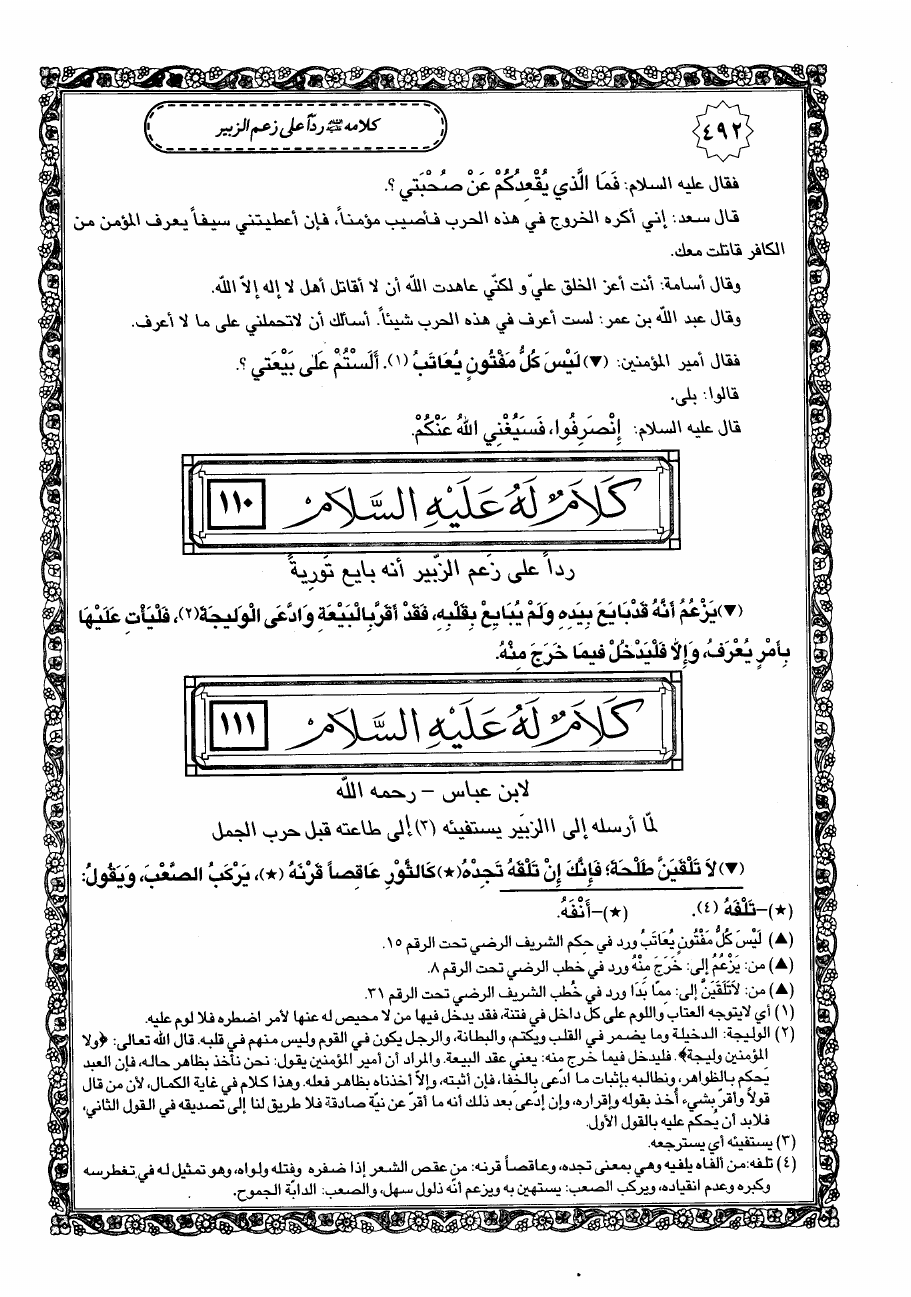 ٤٩٢
كلامه ﵇ رداً على زعم الزبير
فقال عليه السلام: فَمَا الَّذي يُقْعِدُكُمْ عَنْ صُحْبَتي ؟.
قال سعد: إني أكره الخروج في هذه الحرب فأصيب مؤمناً، فإن أعطيتني سيفاً يعرف المؤمن من
الكافر قاتلت معك.
وقال أسامة: أنت أعز الخلق عليّ و لكنّي عاهدت اللّه أن لا أقاتل أهل لا إله إلاّ اللّه.
وقال عبد اللّه بن عمر: لست أعرف في هذه الحرب شيئاً. أسألك أن لاتحملني على ما لا أعرف.
فقال أمير المؤمنين: (▼) لَيْسَ كُلُّ مَفْتُونٍ يُعَاتَبُ (١). أَلَسْتُمْ عَلى بَيْعَتي ؟.
قالوا: بلى.
قال عليه السلام: إِنْصَرِفُوا، فَسَيُغْنِي اللّهُ عَنْكُمْ.
كَلَامٌ لَهُ عَلَيْهِ السَّلَامُ ١١٠
رداً على زعم الزّبير أنه بايع تَوريةً
(▼)يَزْعُمُ أَنَّهُ قَدْبَايَعَ بِيَدِهِ وَلَمْ يُبَايِعْ بِقَلْبِهِ، فَقَدْ أَقَرَّبِالْبَيْعَةِ وَادَّعَى الْوَليجَةَ(٢)، فَلْيَأْتِ عَلَيْهَا
بِأَمْرٍ يُعْرَفُ، وَإِلاَّ فَلْيَدْخُلْ فيمَا خَرَجَ مِنْهُ.
كَلَامٌ لَهُ عَلَيْهِ السَّلَامُ ١١١
لابن عباس – رحمه اللّه
لمّا أرسله إلى االزبَير يستفيئه (٣) إلى طاعته قبل حرب الجمل
(▼)لاَ تَلْقَيَنَّ طَلْحَةَ؛ فَإِنَّكَ إِنْ تَلْقَهُ تَجِدْهُ(★)كَالثَّوْرِ عَاقِصاً قَرْنَهُ (★)، يَرْكَبُ الصَّعْبَ، وَيَقُولُ:
(★)–تَلْفَهُ (٤). (★)–أَنْفَهُ.
(▲) لَيْسَ كُلُّ مَفْتُونٍ يُعَاتَبُ ورد في حِكم الشريف الرضي تحت الرقم ١٥.
(▲) من: يَزْعُمُ إلى: خَرَجَ مِنْهُ ورد في خطب الرضي تحت الرقم ٨.
(▲) من: لاَتَلْقَيَنَّ إلى: مِمَّا بَدَا ورد في خُطب الشريف الرضي تحت الرقم ٣١.
(١) أي لايتوجه العتاب واللوم على كل داخل في فتنة، فقد يدخل فيها من لا محيص له عنها لأمر اضطره فلا لوم عليه.
(٢) الوليجة: الدخيلة وما يضمر في القلب ويكتم، والبطانة، والرجل يكون في القوم وليس منهم في قلبه. قال اللّه تعالى: ﴿ولا
المؤمنين وليجة﴾. فليدخل فيما خرج منه: يعني عقد البيعة. والمراد أن أمير المؤمنين يقول: نحن نأخذ بظاهر حاله، فإن العبد
يَحكم بالظواهر، ونطالبه بإثبات ما ادّعى بالخفا، فإن أثبته، وإلاّ أخذناه بظاهر فعله. وهذا كلام في غاية الكمال، لأن من قال
قولاً وأقرّ بشيء أُخذ بقوله وإقراره، وإن إدعى بعد ذلك أنه ما أقرّ عن نيّة صادقة فلا طريق لنا إلى تصديقه في القول الثاني،
فلابد أن يُحكم عليه بالقول الأول.
(٣) يستفيئه أي يسترجعه.
(٤) تلفه:من ألفاه يلفيه وهي بمعنى تجده، وعاقصاً قرنه: من عقص الشعر إذا ضفره وفتله ولواه، وهو تمثيل له في تغطرسه
وكبره وعدم انقياده، ويركب الصعب: يستهين به ويزعم أنّه ذلول سهل، والصعب: الدابّة الجموح.